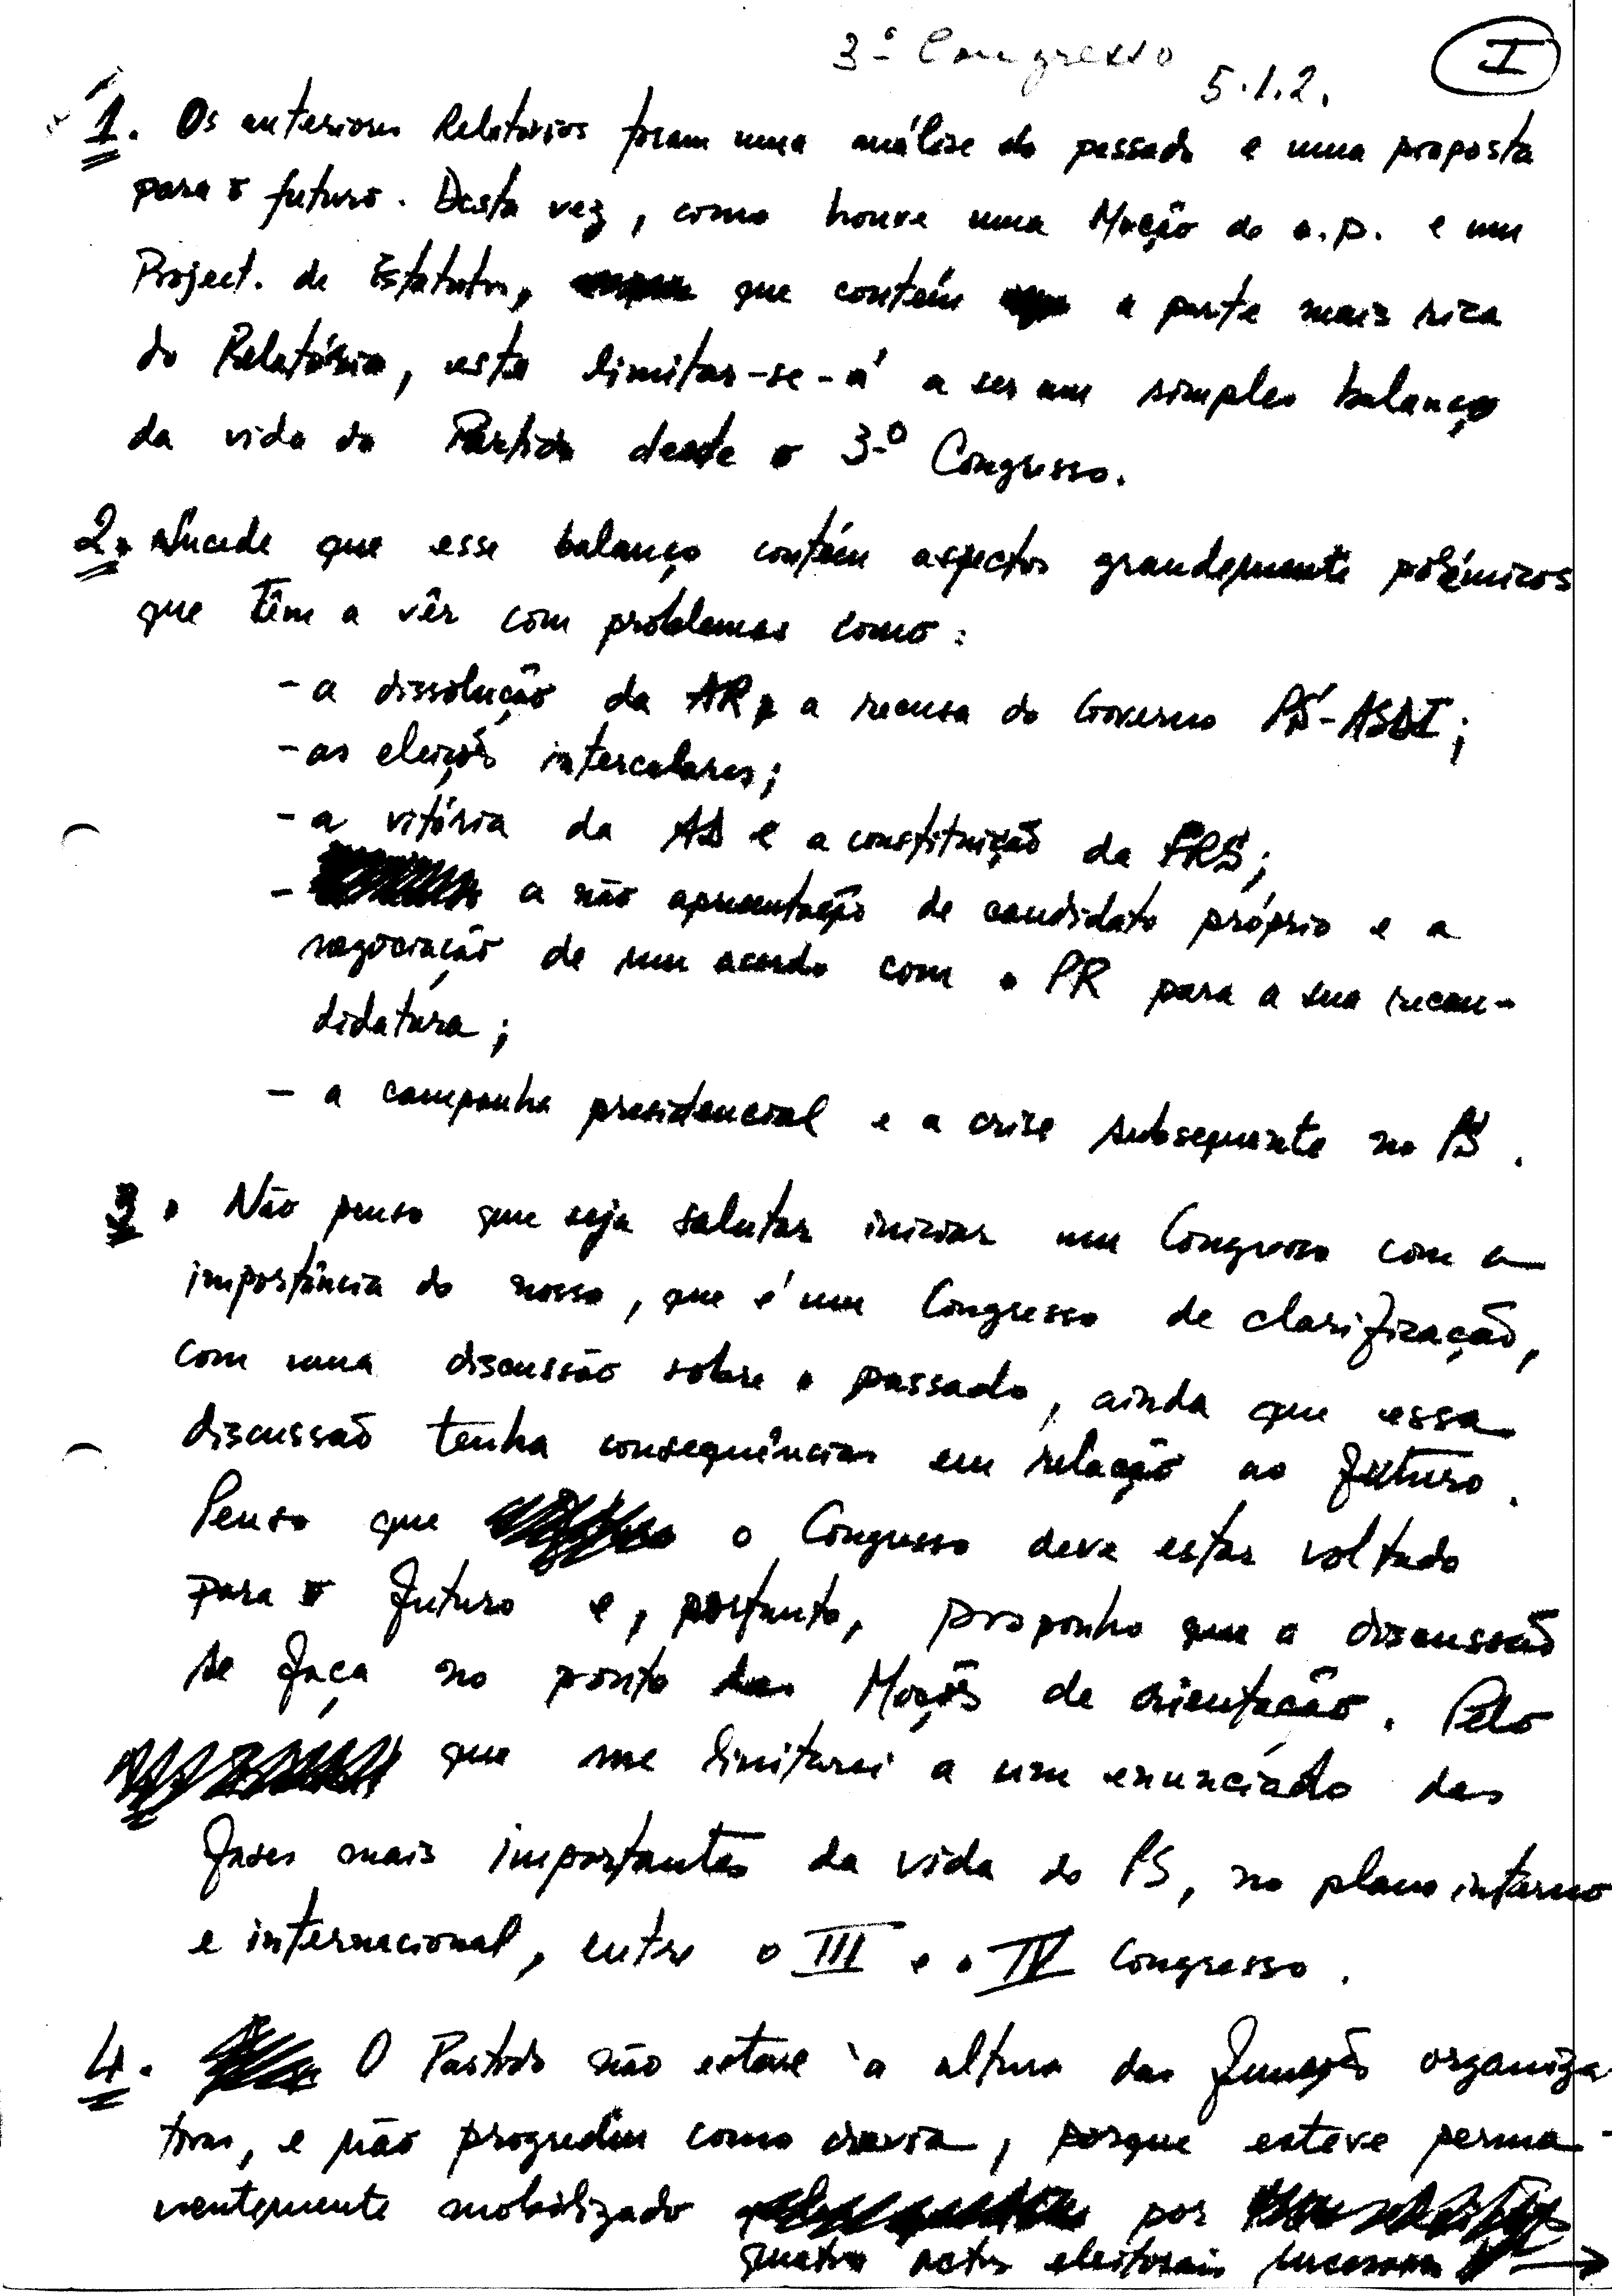 3º Congresso
5.1.2.
I
1. Os anteriores Relatórios foram uma análise do passado e uma proposta
para o futuro. Desta vez, como houve uma Moção de o.p. e um
Project. de Estatutos, que contém a parte mais rica
do Relatório, este limitar-se-á a ser um simples balanço
da vida do Partido desde o 3º Congresso.
2. Sucede que esse balanço contém aspectos grandemente polémicos
que têm a vêr com problemas como:
- a dissolução da AR, a recusa do Governo PS-ASDI;
- as eleições intercalares;
- a vitória da AD e a constituição da FRS;
- a não apresentação de candidato próprio e a
negociação de um acordo com o PR para a sua recan-
didatura;
- a campanha presidencial e a crise subsequente no PS.
3. Não penso que seja salutar iniciar um Congresso com a
importância do nosso, que é um Congresso de clarificação,
com uma discussão sobre o passado, ainda que essa
discussão tenha consequências em relação ao futuro.
Penso que o Congresso deve estar voltado
para o futuro e, portanto, proponho que a discussão
se faça no ponto das Moções de orientação. Pelo
que me limitarei a um enunciado das
fases mais importantes da vida do PS, no plano interno
e internacional, entre o III e o IV Congresso.
4. O Partido não esteve à altura das funções organiza-
tivas, e não progrediu como devia, porque esteve perma-
nentemente mobilizado por
quatro actos eleitorais sucessivos →